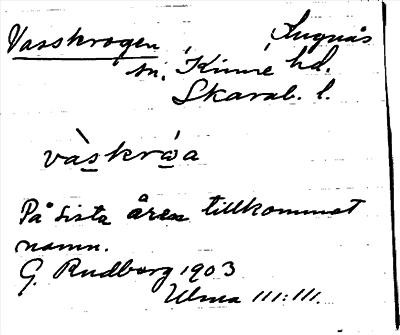 Vasskrogen, Lugnås
sn, Kinne hd.
Skarab. l.
vàskrǻa
På sista åren tillkommet
namn.
G. Rudberg 1903
Ulma 111:111.